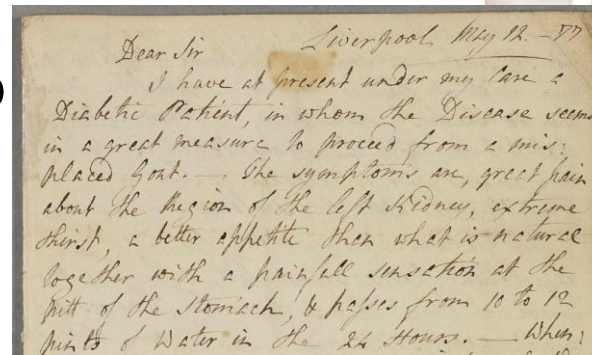 Liverpool May 12. - 87
Dear Sir
I have at present under my Care a
Diabetic Patient, in whom the Disease seems
in a great measure to proceed from a mis:
placed Gout. — The symptoms are, great pain
about the Region of the left Kidney, extreme
thirst, a better appetite than what is natural
together with a painfull sensation at the
pitt of the Stomach, & passes from 10 to 12
pints of Water in the 24 Hours. — When: